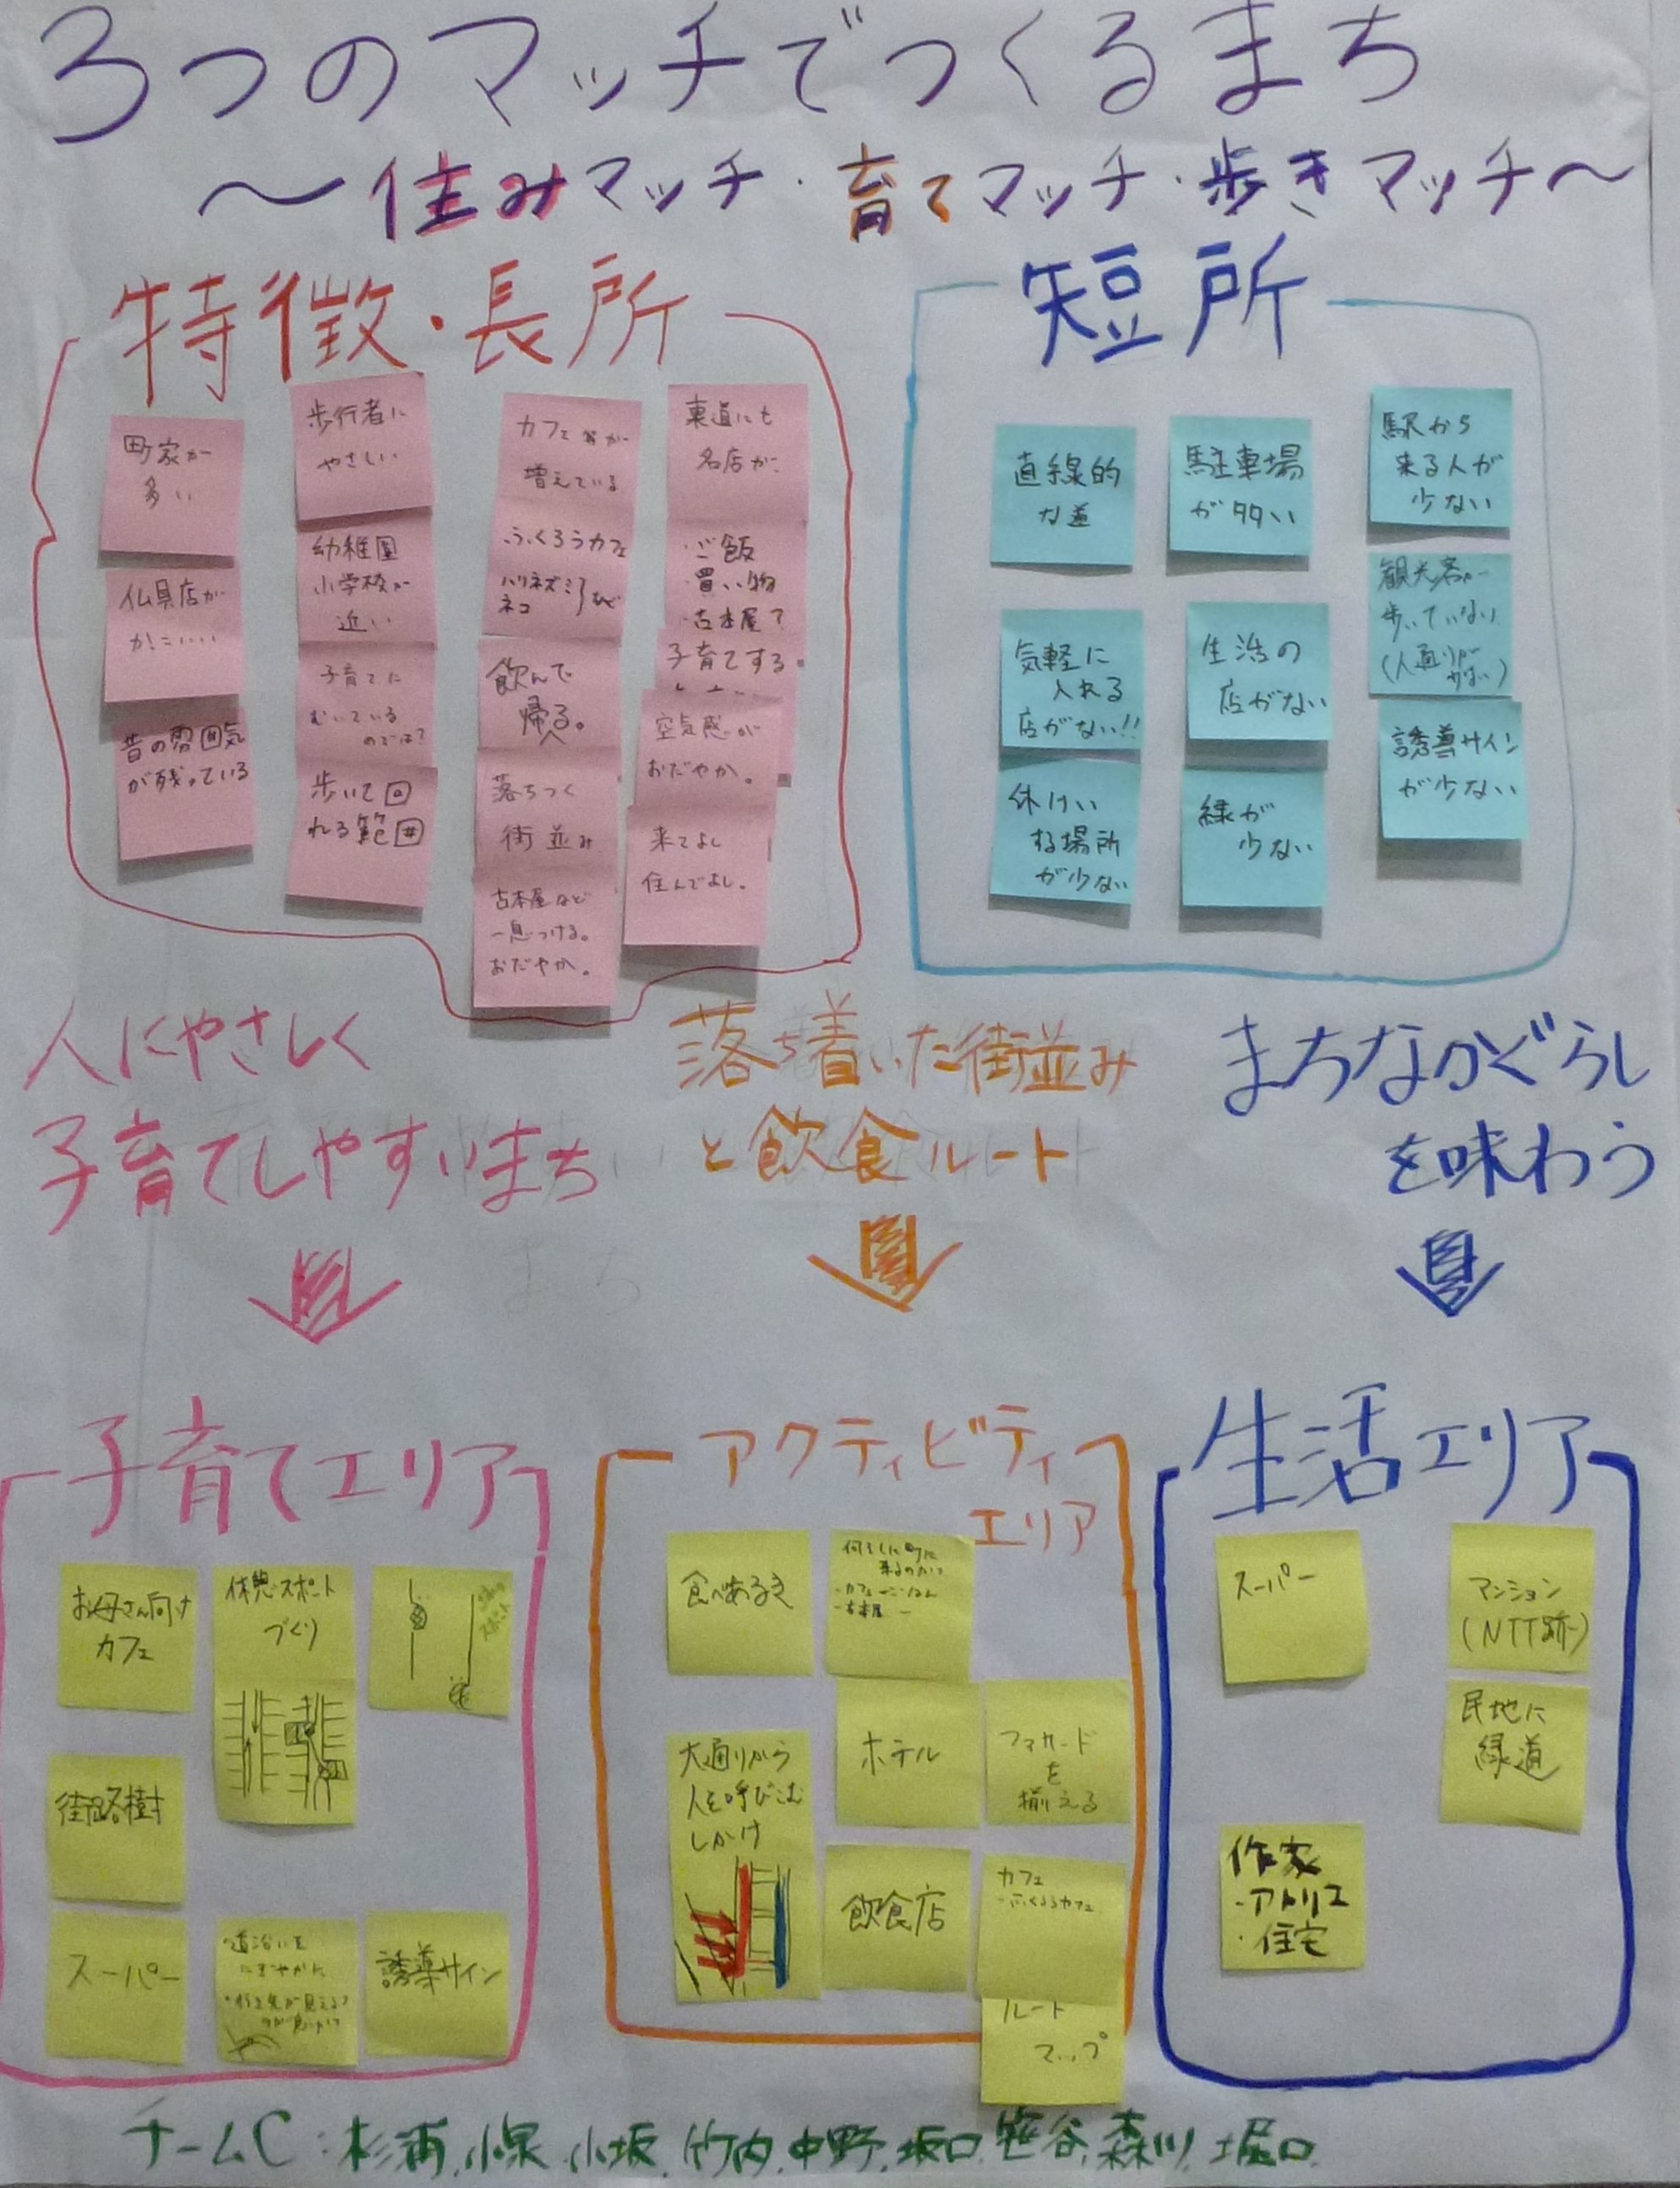 3つのマッチでつくるまち
～住みマッチ・育てマッチ・歩きマッチ～
特徴・長所
町家が
多い
仏具店が
かこいい
昔の雰囲気
が残っている
歩行者に
やさしい
幼稚園
小学校が
近い
子育てに
むいている
のでは?
歩いて回
れる範囲
カフェ等が
増えている
ふくろうカフェ
ハリネズミ
ネコ など
飲んで
帰る。
落ちつく
街並み
古本屋など
一息つける。
おだやか。
裏道にも
名店が
・ご飯
・買い物
・古本屋?
子育てする
空気感が
おだやか。
来てよし
住んでよし。
短所
直線的
な道
気軽に
入れる
店がない!!
休けい
する場所
が少ない
駐車場
が多い
生活の
店がない
緑が
少ない
駅から
来る人が
少ない
観光客が
歩いていない
誘導サイン
が少ない
人にやさしく
子育てしやすいまち
落ち着いた街並み
と飲食ルート
まちなかぐらし
を味わう
子育てエリア
お母さん向け
カフェ
休憩スポット
づくり
街路樹
スーパー
・道沿いを
にぎやかに
誘導サイン
アクティビティ
エリア
食べあるき
・カフェ
・古本屋
大通りから
人を呼びこむ
しかけ
ホテル
ファサード
を
揃える
飲食店
カフェ
・ふくろうカフェ
ルート
マップ
生活エリア
スーパー
マンション
(NTT跡)
民地に
緑道
作家
・アトリエ
・住宅
チームC:杉浦,小泉,小坂,竹内,中野,坂口,笹谷,森川,堀口